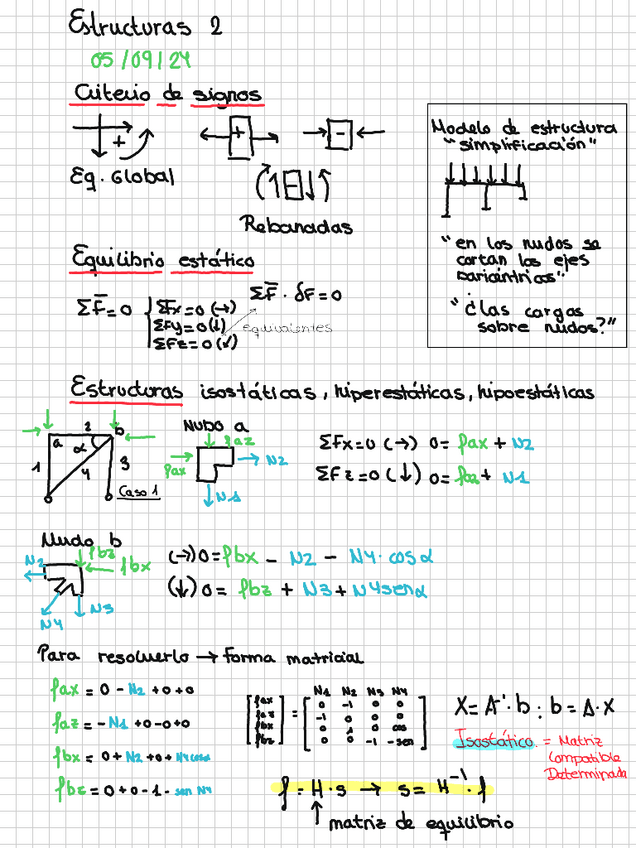 Estructuras 2
05/09/24
Criterio de signos
+
+
-
Eq. Global
Rebanadas
Modelo de estructura
"simplificación"
"en los nudos se
cortan los ejes
baricéntricos"
"¿las cargas
sobre nudos?"
Equilibrio estático
ΣF̅=0 { ΣFx=0 (→)
ΣFy=0 (↓)
ΣFz=0 (↙)
ΣF̅ · δF=0
equivalentes
Estructuras isostáticas, hiperestáticas, hipoestáticas
a 2 b
α
1 4 3
Caso 1
Nudo a
faz
fax
N2
N1
ΣFx=0 (→) 0= fax + N2
ΣFz=0 (↓) 0= faz + N1
Nudo b
N2 fbz
fbx
N3
N4
(→) 0= fbx - N2 - N4· cosα
(↓) 0= fbz + N3 + N4senα
Para resolverlo → forma matricial
fax = 0 - N2 +0 +0
faz = -N1 +0 -0 +0
fbx = 0 + N2 +0 + N4 cosα
fbz = 0 + 0 - 1 - sen N4
N1 N2 N3 N4
[fax] = [0 -1 0 0]
[faz] [-1 0 0 0]
[fbx] [0 1 0 cos]
[fbz] [0 0 -1 -sen]
X = A⁻¹ · b ; b = A · X
Isostático = Matriz
Compatible
Determinada
f = H · s → s = H⁻¹ · f
matriz de equilibrio